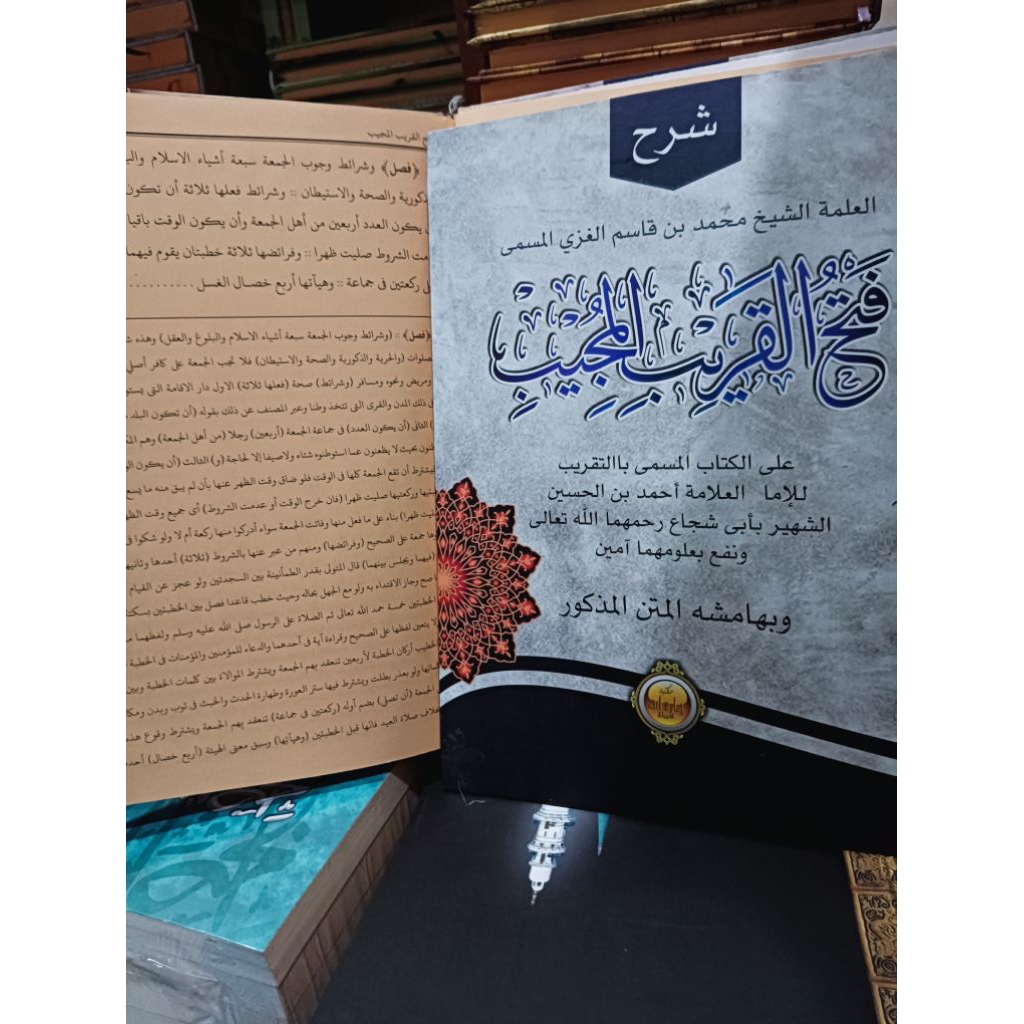 شرح
العلمة الشيخ محمد بن قاسم الغزي المسمى
فَتْحُ القَرِيْبِ المُجِيْبِ
على الكتاب المسمى باالتقريب
للإما العلامة أحمد بن الحسين
الشهير بأبى شجاع رحمهما الله تعالى
ونفع بعلومهما آمين
وبهامشه المتن المذكور
القريب المجيب
(فصل) وشرائط وجوب الجمعة سبعة أشياء الاسلام
والصحة والاستيطان :: وشرائط فعلها ثلاثة أن تكون
يكون العدد أربعين من أهل الجمعة وأن يكون الوقت باقيا
الشروط صليت ظهرا :: وفرائضها ثلاثة خطبتان يقوم فيهما
ركعتين فى جماعة :: وهيآتها أربع خصـال الغسـل
(فصل) :: (وشرائط وجوب الجمعة سبعة أشياء الاسلام والبلوغ والعقل) وهذه
(والحرية والذكورية والصحة والاستيطان) فلا تجب الجمعة على كافر أصلي
ومريض ونحوه ومسافر (وشرائط) صحة (فعلها ثلاثة) الاول دار الاقامة التى
ذلك المدن والقرى التى تتخذ وطنا وعبر المصنف عن ذلك بقوله (أن تكون البلد
الثانى (أن يكون العدد) فى جماعة الجمعة (أربعين) رجلا (من أهل الجمعة) وهم
بحيث لا يظعنون عما استوطنوه شتاء ولاصيفا إلا لحاجة (و) الثالث (أن يكون
فيشترط أن تقع الجمعة كلها فى الوقت فلو ضاق وقت الظهر عنها بأن لم يبق منه ما
وركعتيها صليت ظهرا (فان خرج الوقت أو عدمت الشروط) أى جميع وقت
ظهرا) بناء على ما فعل منها وفاتت الجمعة سواء أدركوا منها ركعة أم لا ولو شكوا فى
جمعة على الصحيح (وفرائضها) ومنهم من عبر عنها بالشروط (ثلاثة) أحدها
(فيهما ويجلس بينهما) قال المتولى بقدر الطمأنينة بين السجدتين ولو عجز عن القيام
صح وجاز الاقتداء به ولو مع الجهل بحاله وحيث خطب قاعدا فصل بين الخطبتين
الخطبتين خمسة حمد الله تعالى ثم الصلاة على الرسول صلى الله عليه وسلم ولفظهما
يتعين لفظها على الصحيح وقراءة آية فى أحدهما والدعاء للمؤمنين والمؤمنات فى الخطبة
الخطيب أركان الخطبة لأربعين تنعقد بهم الجمعة ويشترط الموالاة بين كلمات الخطبة وبين
ولو بعذر بطلت ويشترط فيها ستر العورة وطهارة الحدث والخبث فى ثوب وبدن
الجمعة (أن تصلى) بضم أوله (ركعتين فى جماعة) تنعقد بهم الجمعة ويشترط وقوع هذه
صلاة العيد فانها قبل الخطبتين (وهيآتها) وسبق معنى الهيئة (أربع خصال)